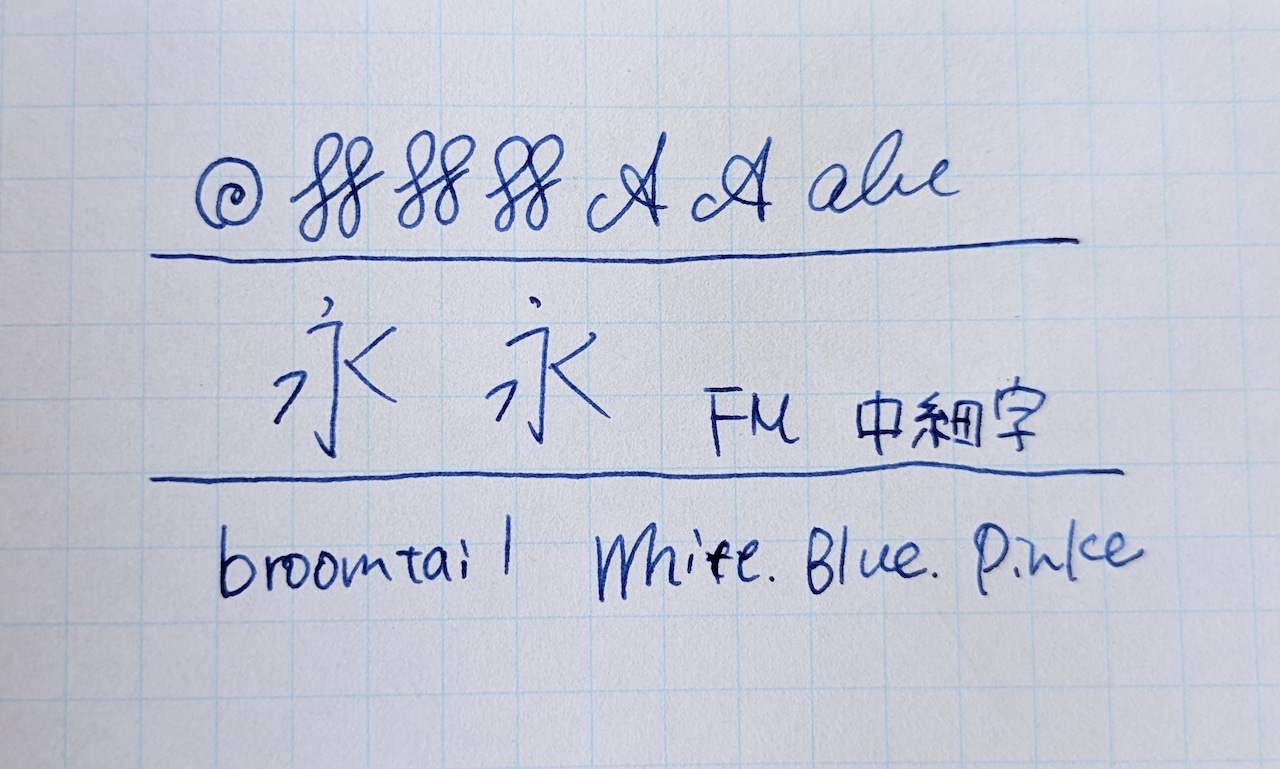 @ ff ff ff A A abc
永 永 FM 中細字
broomtail White. Blue. Pinke